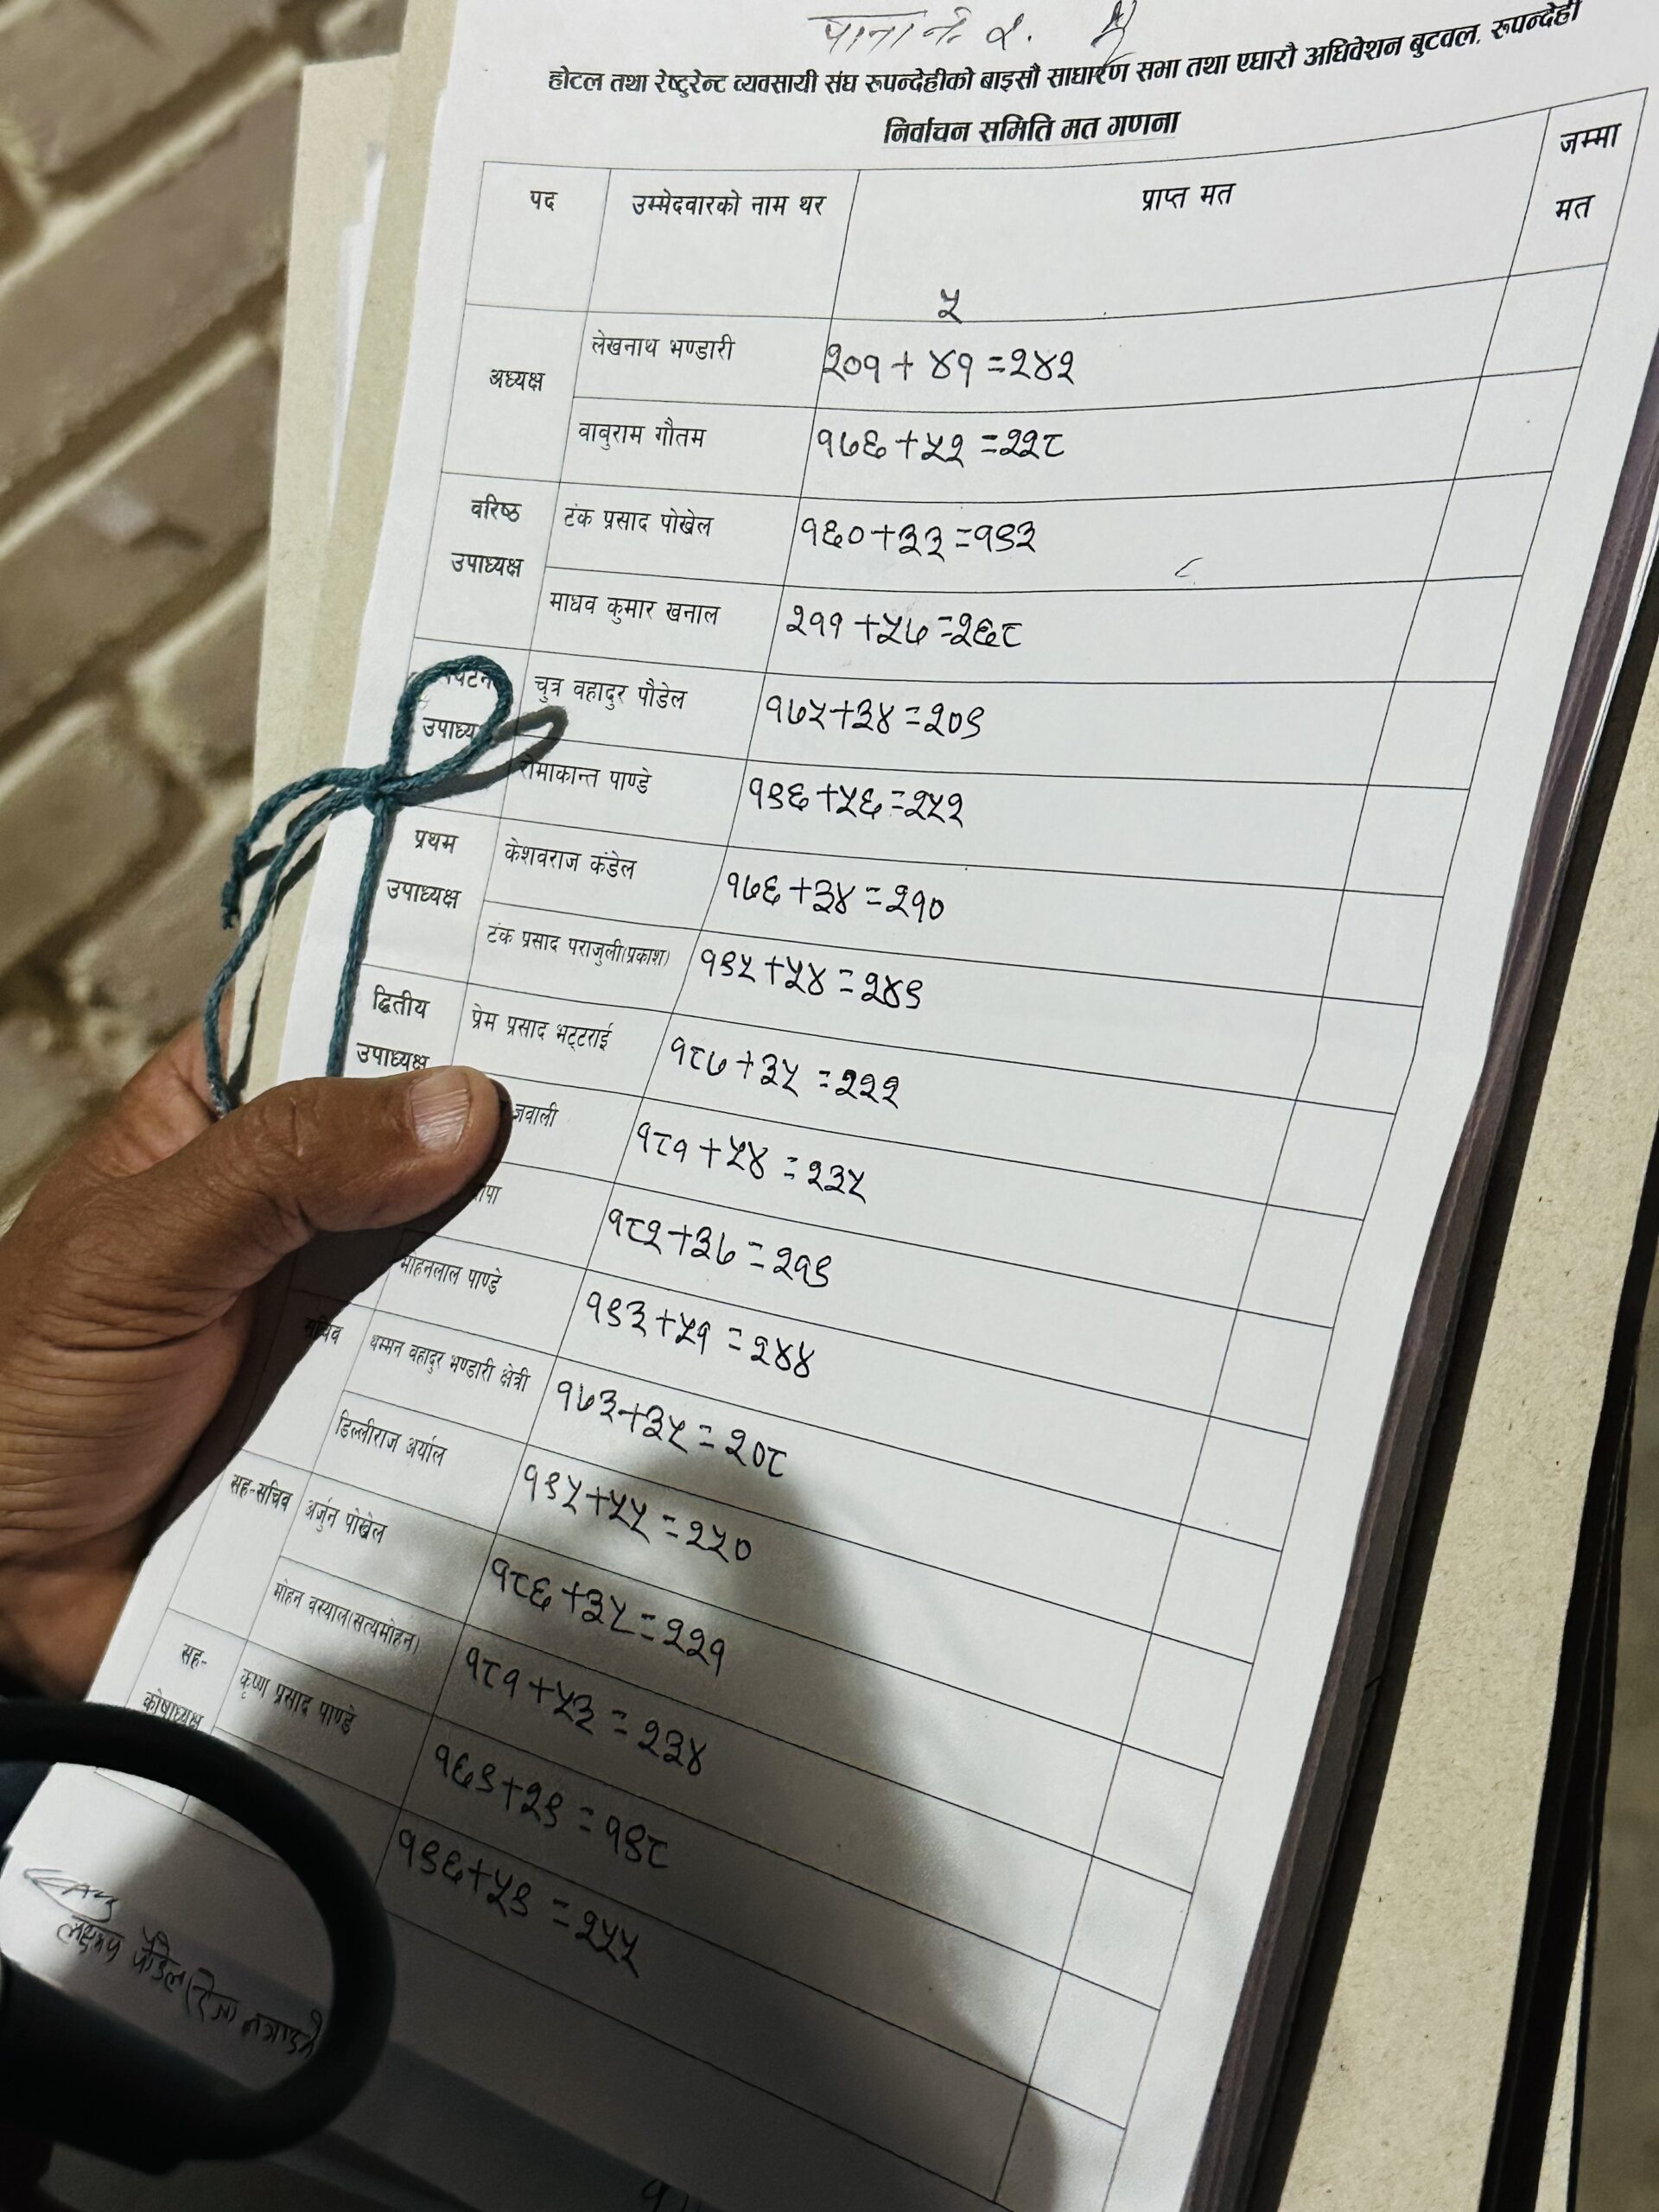 पाना नं. २.
होटल तथा रेष्टुरेन्ट व्यवसायी संघ रूपन्देहीको बाइसौ साधारण सभा तथा एघारौ अधिवेशन बुटवल, रूपन्देही
निर्वाचन समिति मत गणना
पद उम्मेदवारको नाम थर प्राप्त मत जम्मा मत
५
अध्यक्ष
लेखनाथ भण्डारी २०१ + ४१ = २४२
वाबुराम गौतम १७६ + ५२ = २२८
वरिष्ठ उपाध्यक्ष
टंक प्रसाद पोखेल १६० + ३३ = १९३
माधव कुमार खनाल २११ + ५७ = २६८
उपाध्य
चुत्र वहादुर पौडेल १७५ + ३४ = २०९
रोमाकान्त पाण्डे १९६ + ५६ = २५२
प्रथम उपाध्यक्ष
केशवराज कंडेल १७६ + ३४ = २१०
टंक प्रसाद पराजुली(प्रकाश) १९५ + ५४ = २४९
द्वितीय उपाध्यक्ष
प्रेम प्रसाद भट्टराई १८७ + ३५ = २२२
ज्ञवाली १८१ + ५४ = २३५
१८२ + ३७ = २१९
मोहनलाल पाण्डे १९३ + ५१ = २४४
सचिव
थम्मन वहादुर भण्डारी क्षेत्री १७३ + ३५ = २०८
डिल्लीराज अर्याल १९५ + ५५ = २५०
सह-सचिव
अर्जुन पोखेल १८६ + ३५ = २२१
मोहन वस्याल(सत्यमोहन) १८१ + ५३ = २३४
सह-कोषाध्यक्ष
कृष्ण प्रसाद पाण्डे १६९ + २९ = १९८
१९६ + ५९ = २५५
लक्ष्मण पौडेल